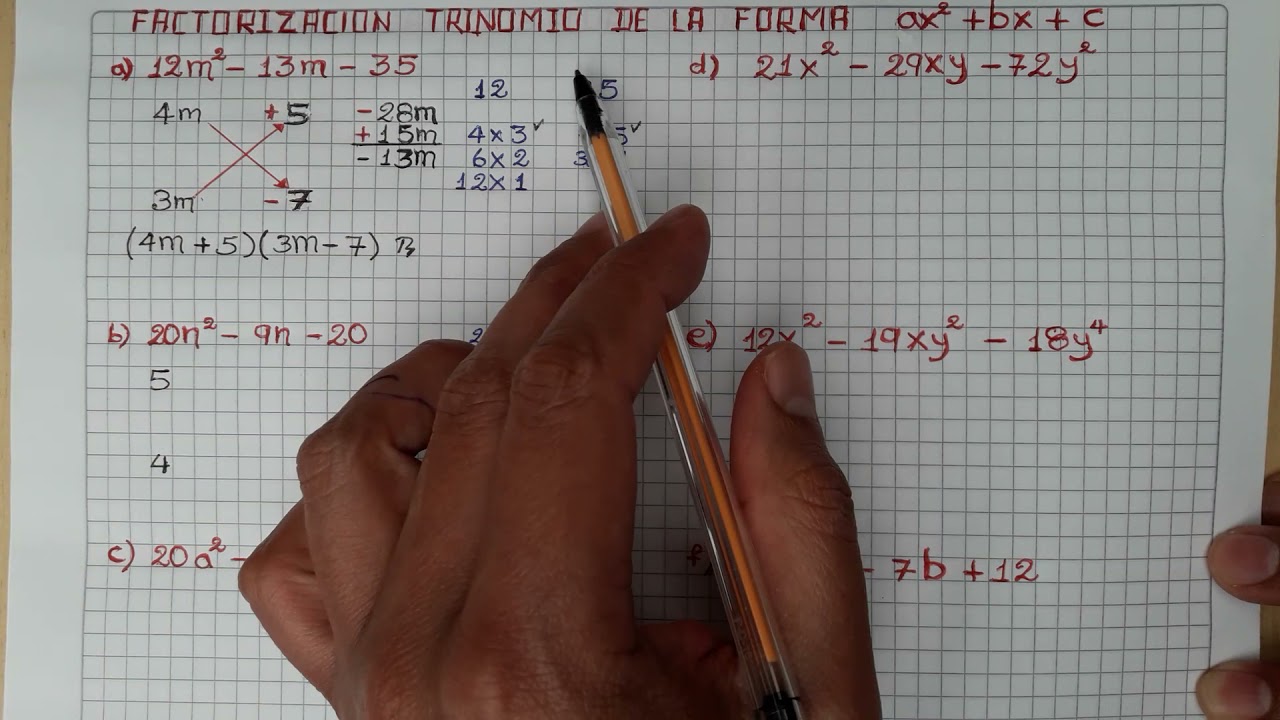 FACTORIZACION TRINOMIO DE LA FORMA ax² + bx + c
a) 12m² - 13m - 35
4m + 5
3m - 7
- 28m
+ 15m
- 13m
12
4 x 3 ✓
6 x 2
12 x 1
5
5 ✓
3
(4m + 5)(3m - 7) R
b) 20n² - 9n - 20
2
5
4
c) 20a² -
d) 21x² - 29xy - 72y²
e) 12x² - 19xy² - 18y⁴
f)
- 7b + 12